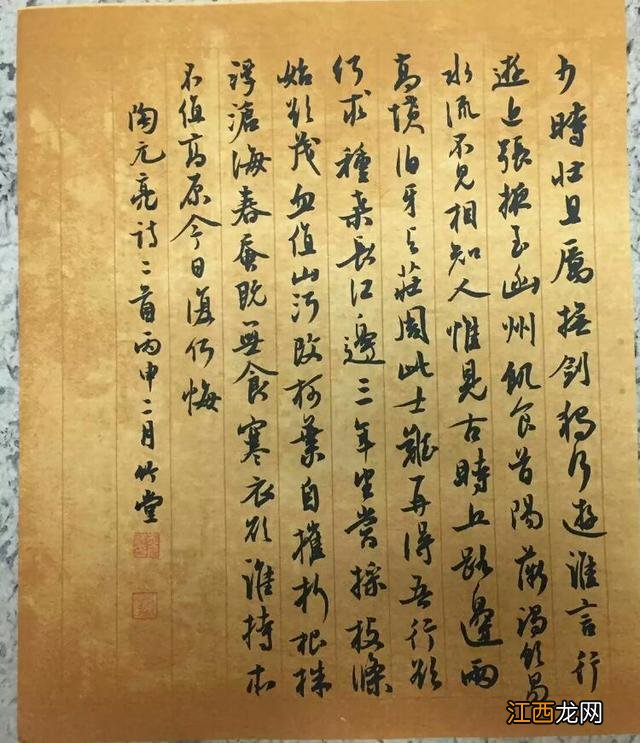 少時壯且厲撫劍獨行遊誰言行
遊近張掖至幽州飢食首陽薇渴飲易
水流不見相知人惟見古時丘路邊兩
高墳伯牙与莊周此士難再得吾行欲
何求種桑長江邊三年望當採枝條
始欲茂忽值山河改柯葉自摧折根株
浮滄海春蠶既無食寒衣欲誰待本
不值高原今日復何悔
陶元亮詩二首丙申二月竹堂
江西龙网